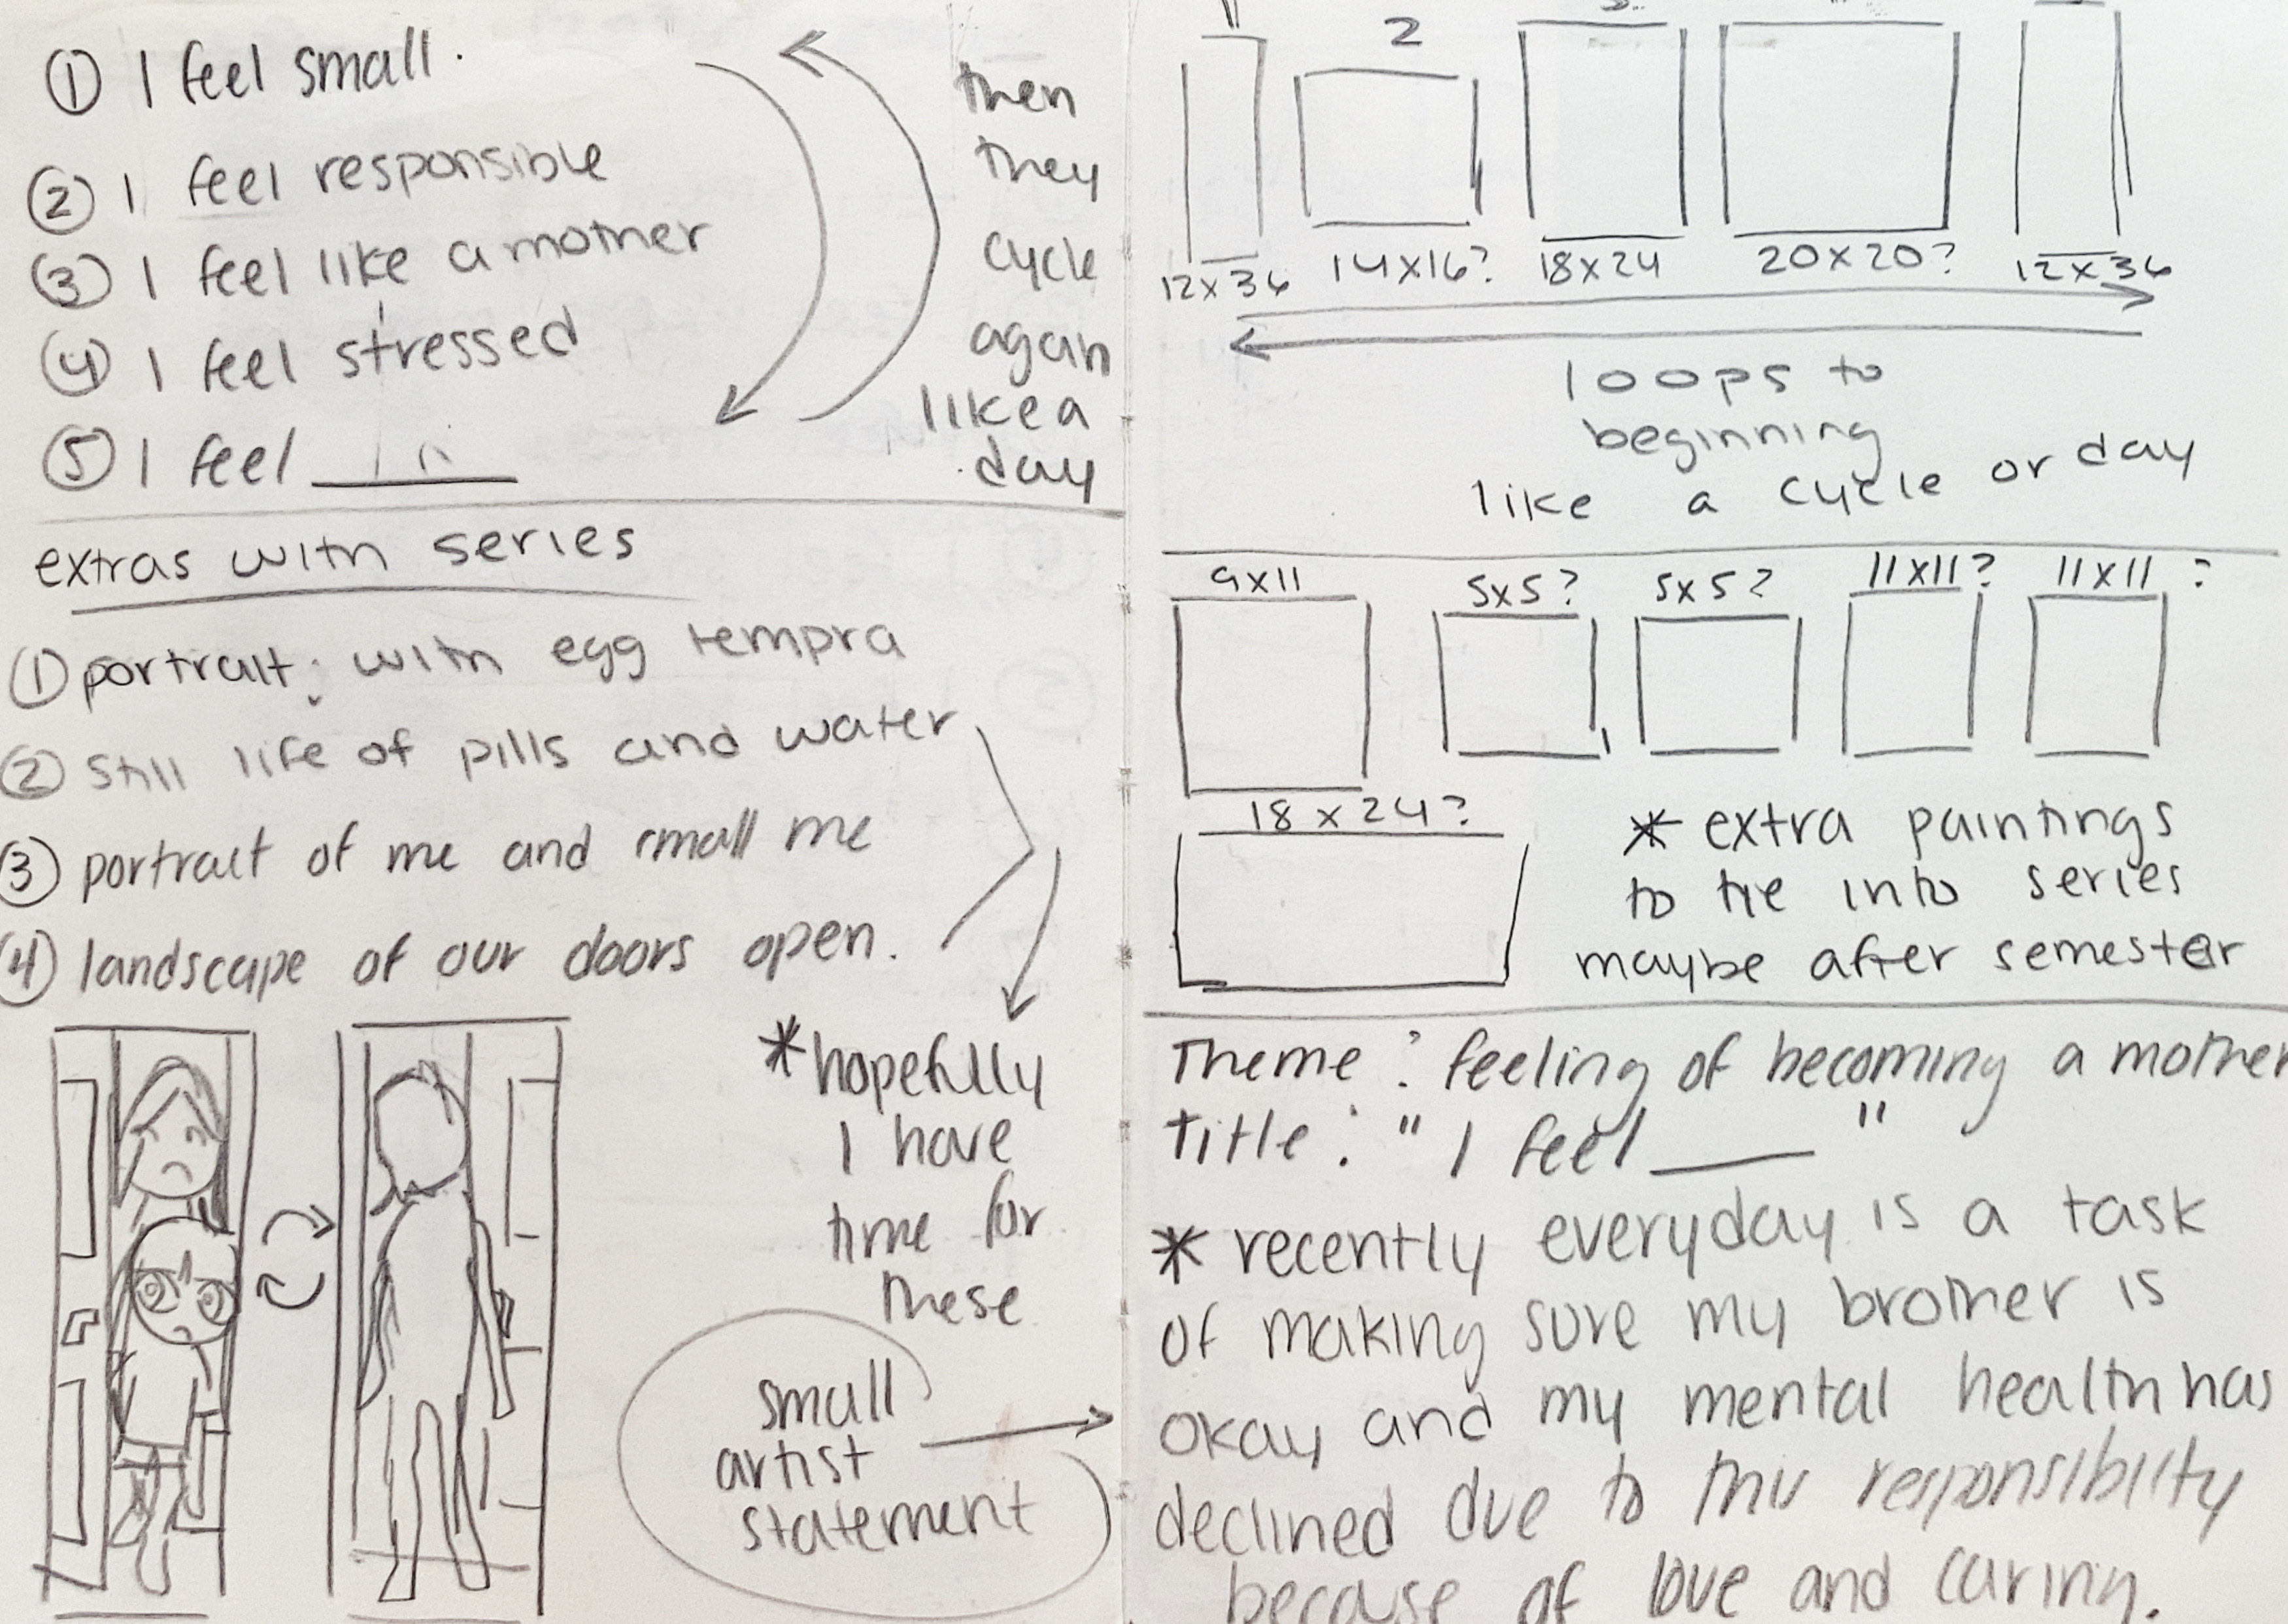 ① I feel small.
② I feel responsible
③ I feel like a mother
④ I feel stressed
⑤ I feel ____
then
they
cycle
again
like a
day
extras with series
① portrait: with egg tempra
② still life of pills and water
③ portrait of me and small me
④ landscape of our doors open.
*hopefully
I have
time for
these
small
artist
statement
2
12x36
14x16?
18x24
20x20?
12x36
loops to
beginning
like a cycle or day
9x11
5x5?
5x5?
11x11?
11x11?
18x24?
* extra paintings
to tie into series
maybe after semester
Theme: feeling of becoming a mother
title: "I feel ____"
* recently everyday is a task
of making sure my brother is
okay and my mental health has
declined due to this responsibility
because of love and caring.